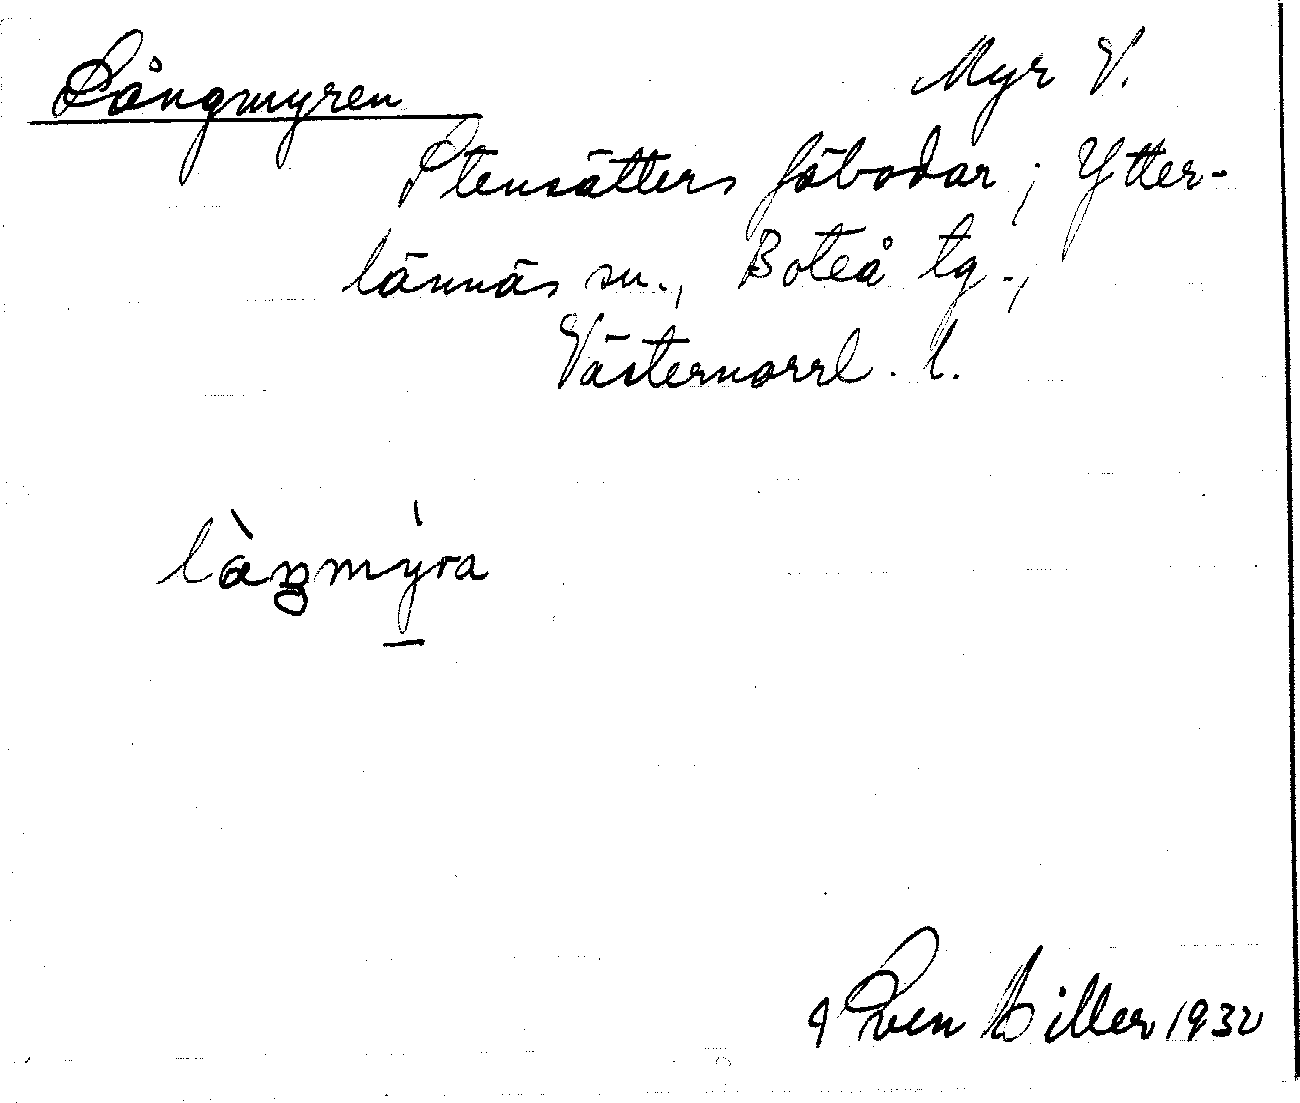 Långmyren
Myr V.
Stensätters fäbodar; Ytter-
lännäs sn., Boteå tg.,
Västernorrl. l.
làŋmýra
Sven Hiller 1932